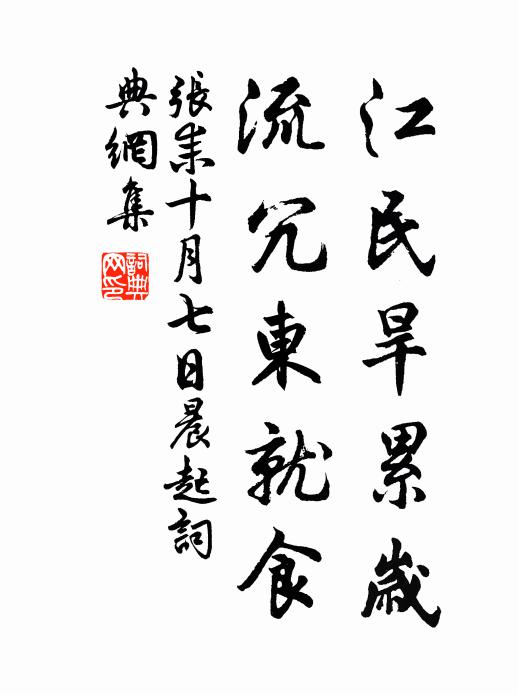 江民旱累歲
流冗東就食
張耒十月七日晨起詞
典網集
詞典网印